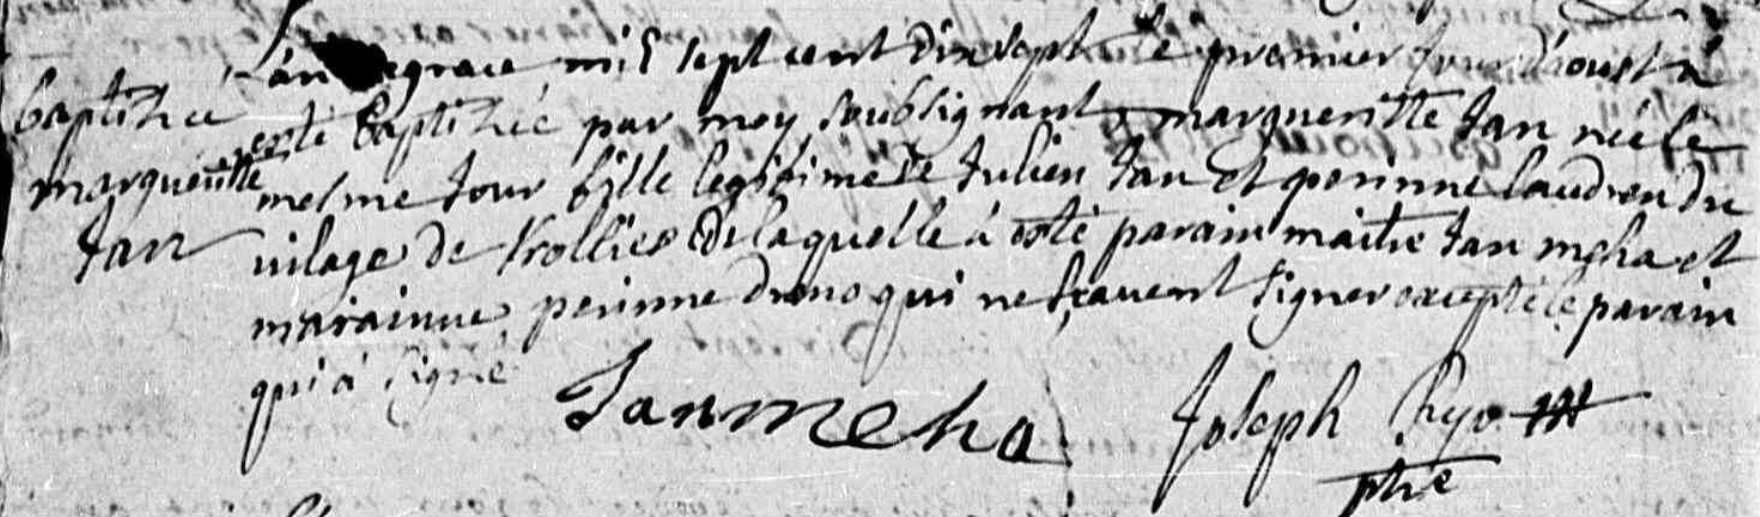 baptisée
margueritte
Jan
L'an degrace mil sept cent dix sept le premier jour d'aoust a
esté baptisée par moy soubsignant margueritte Jan née le
mesme Jour fille legitime de Julien Jan et perinne laudren du
vilage de de laquelle a esté parain maitre Jan meha et
marainne perinne drono qui ne sçauent signer excepté le parain
qui a signé
Jan meha
Joseph Ryo
ptre